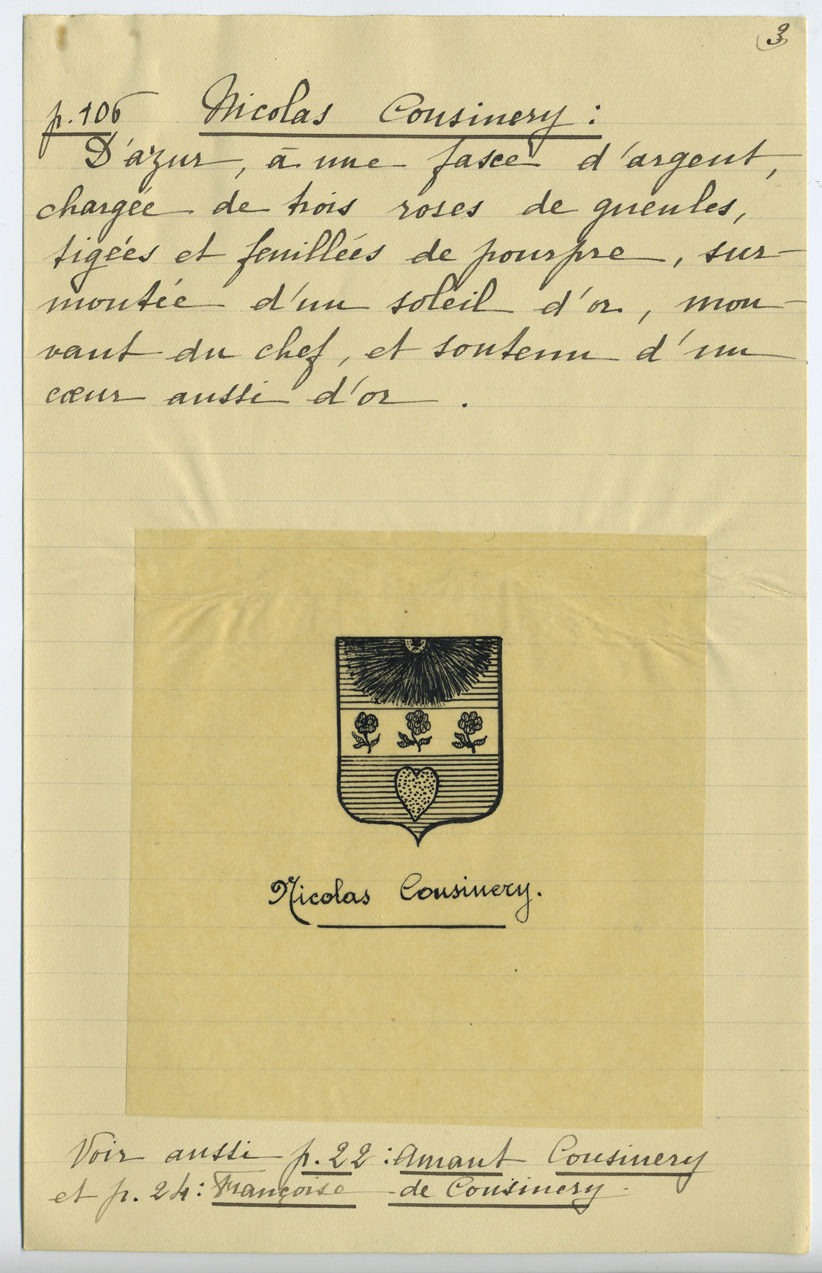 3
p.106 Nicolas Cousinery :
D'azur, à une fasce d'argent,
chargée de trois roses de gueules,
tigées et feuillées de pourpre, sur-
montée d'un soleil d'or, mou-
vant du chef, et soutenu d'un
cœur aussi d'or.
Nicolas Cousinery.
Voir aussi p.22 : Amant Cousinery
et p. 24 : Françoise de Cousinery.